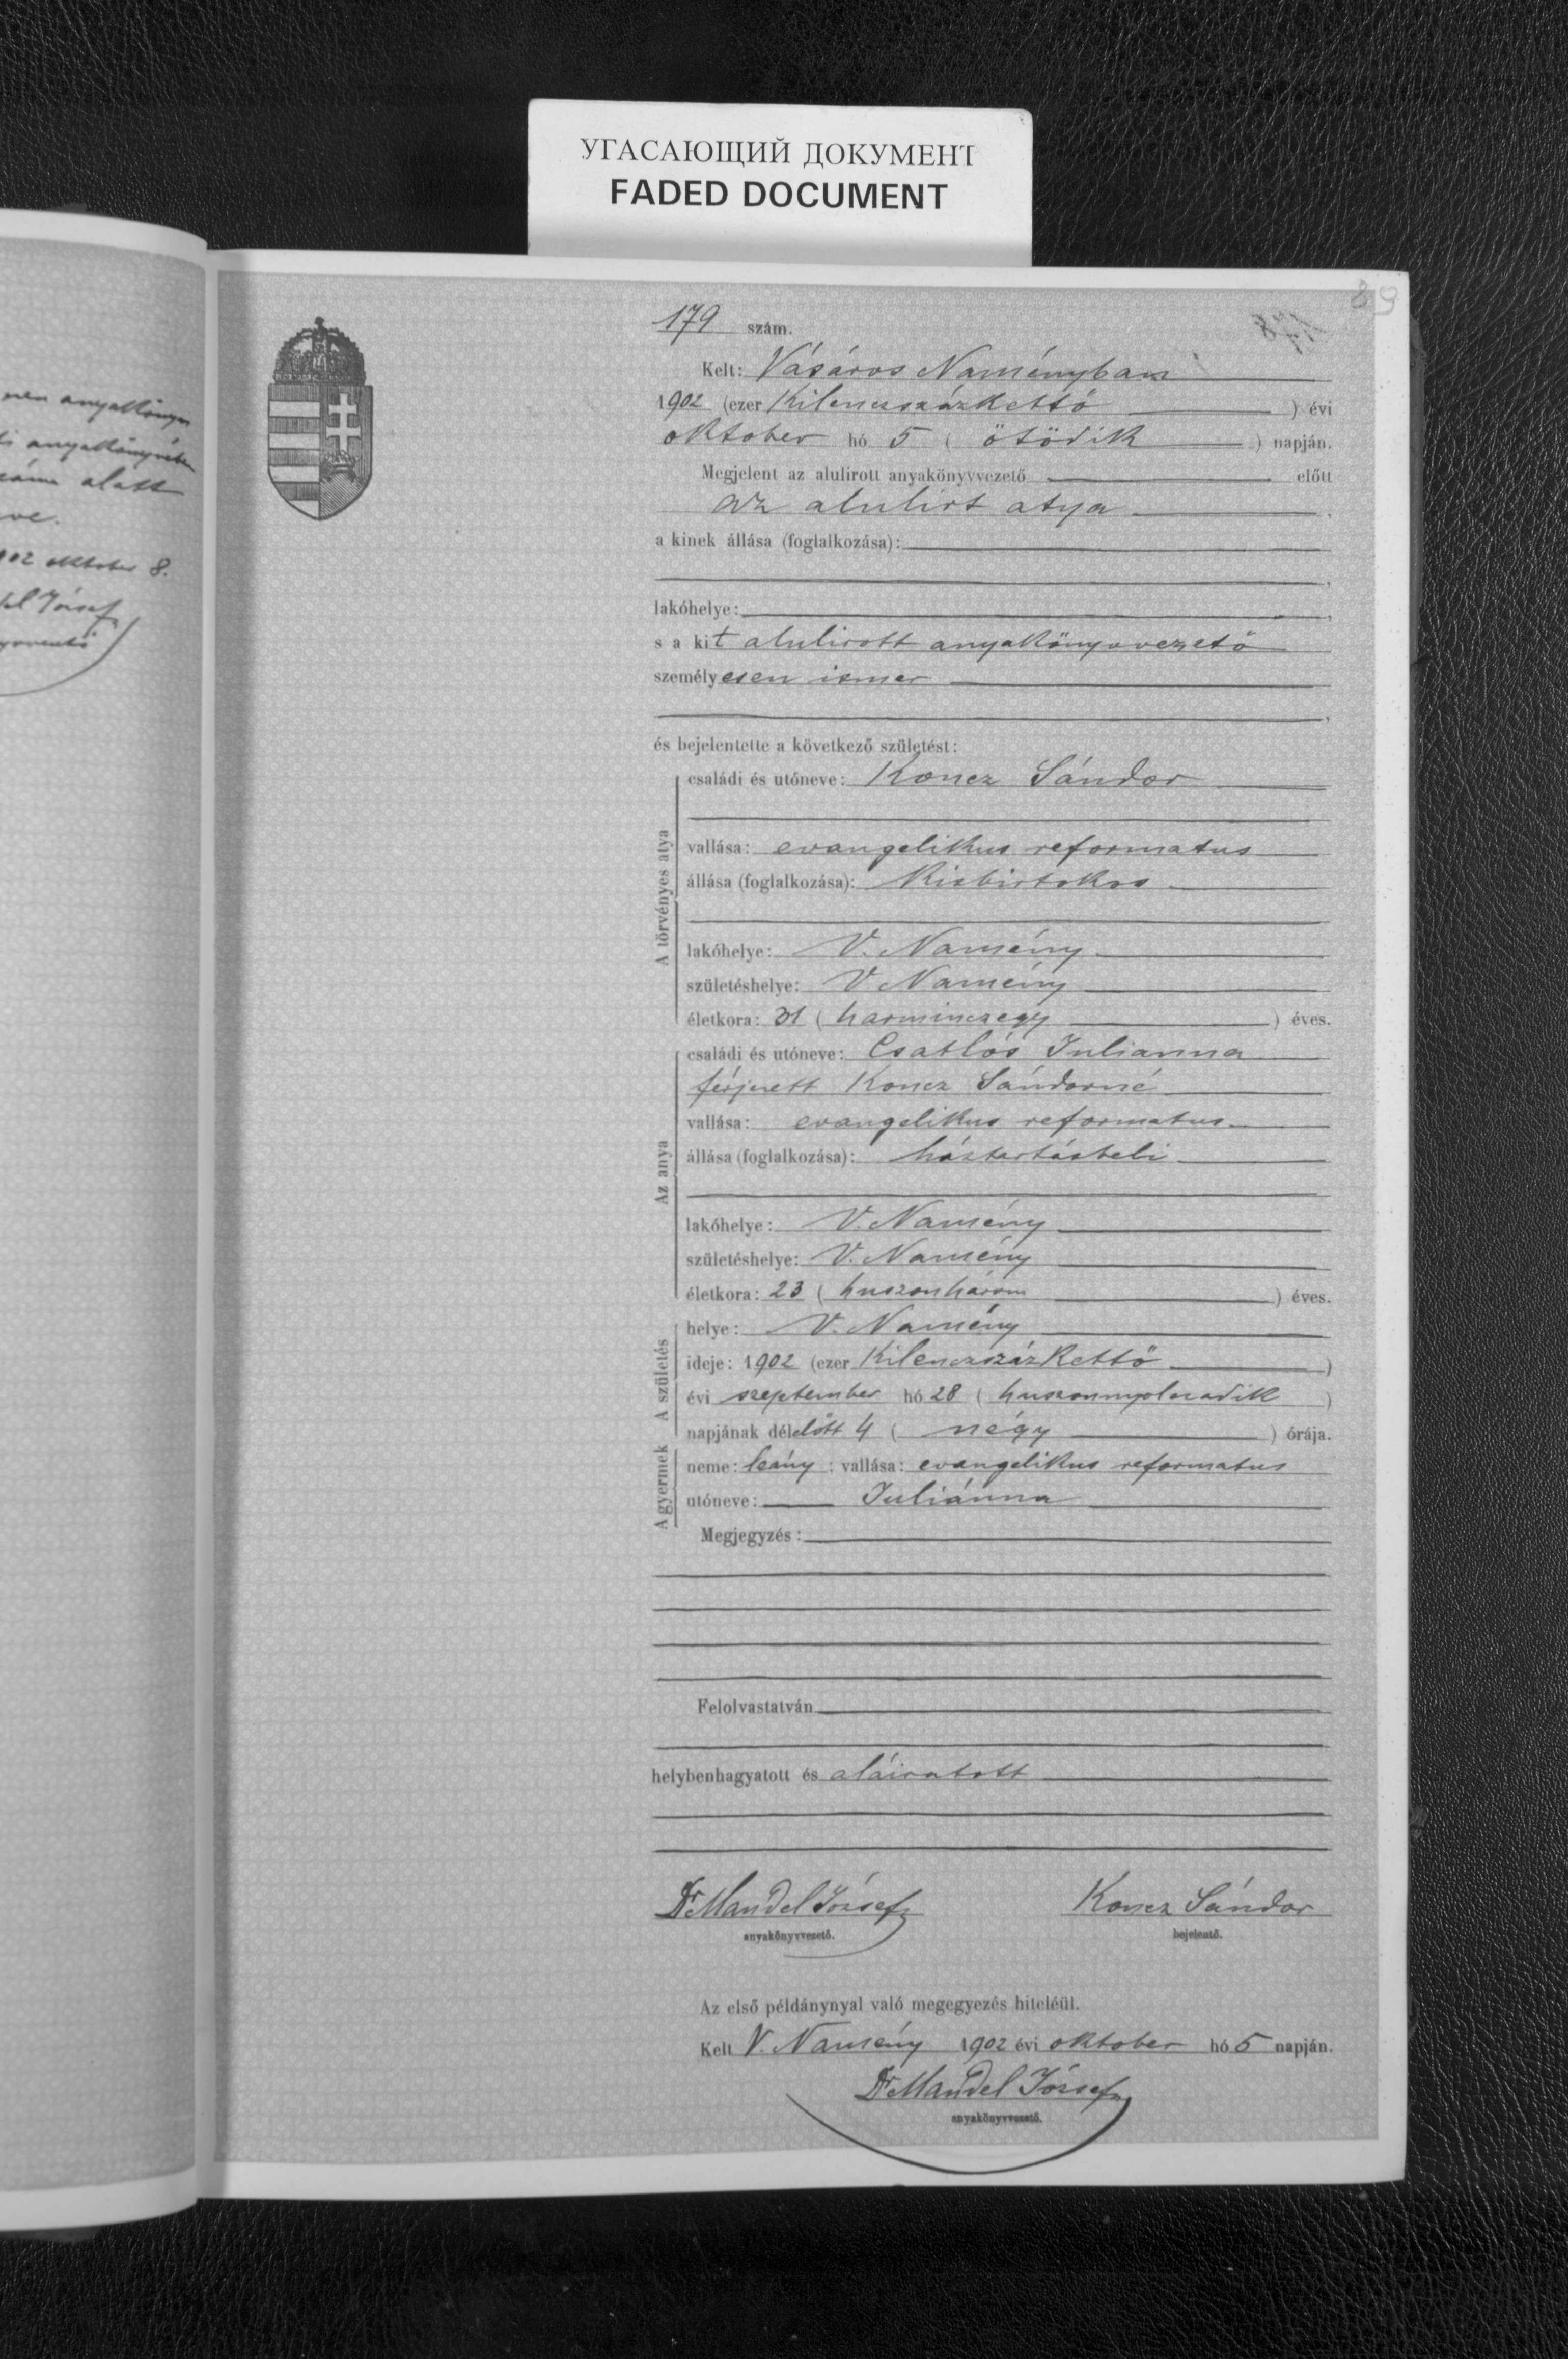 УГАСАЮЩИЙ ДОКУМЕНТ
FADED DOCUMENT
anyakönyv
anyakönyvében
alatt
ve.
902 oktober 8.
József
89
178
179 szám.
Kelt: Vásáros Naményban
1902 (ezer Kilenczszázkettő ) évi
oktober hó 5 ( ötödik ) napján.
Megjelent az alulirott anyakönyvvezető előtt
az alulirt atya ,
a kinek állása (foglalkozása):
,
lakóhelye: ,
s a kit alulirott anyakönyvvezető
személyesen ismer
,
és bejelentette a következő születést:
A törvényes atya
családi és utóneve: Koncz Sándor
vallása: evangelikus reformatus
állása (foglalkozása): Kisbirtokos
lakóhelye: V. Namény
születéshelye: V Namény
életkora: 31 ( harminczegy ) éves.
Az anya
családi és utóneve: Csatlós Julianna
férjezett Koncz Sándorné
vallása: evangelikus reformatus
állása (foglalkozása): háztartásbeli
lakóhelye: V. Namény
születéshelye: V. Namény
életkora: 23 ( huszonhárom ) éves.
A születés
helye: V. Namény
ideje: 1902 (ezer Kilenczszázkettő )
évi szeptember hó 28 ( huszonnyolczadik )
napjának délelőtt 4 ( négy ) órája.
A gyermek
neme: leány ; vallása: evangelikus reformatus
utóneve: Juliánna
Megjegyzés:
Felolvastatván
helybenhagyatott és aláiratott
Dr Mandel József Koncz Sándor
anyakönyvvezető. bejelentő.
Az első példánynyal való megegyezés hiteléül.
Kelt V. Namény 1902 évi oktober hó 5 napján.
Dr Mandel József
anyakönyvvezető.